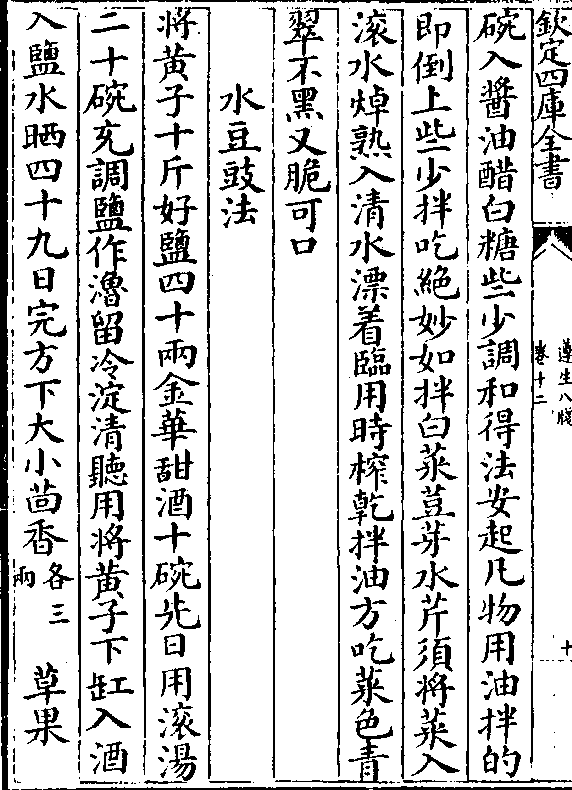 欽定四庫全書
遵生八牋
卷十二
十
碗入醬油醋白糖些少調和得法安起凡物用油拌的
即倒上些少拌吃絶妙如拌白菜荳芽水芹須將菜入
滚水焯熟入清水漂着臨用時榨乾拌油方吃菜色青
翠不黑又脆可口
水豆豉法
將黄子十斤好鹽四十兩金華甜酒十碗先日用滚湯
二十碗充調鹽作滷留冷淀清聽用將黄子下缸入酒
入鹽水晒四十九日完方下大小茴香各三兩草果